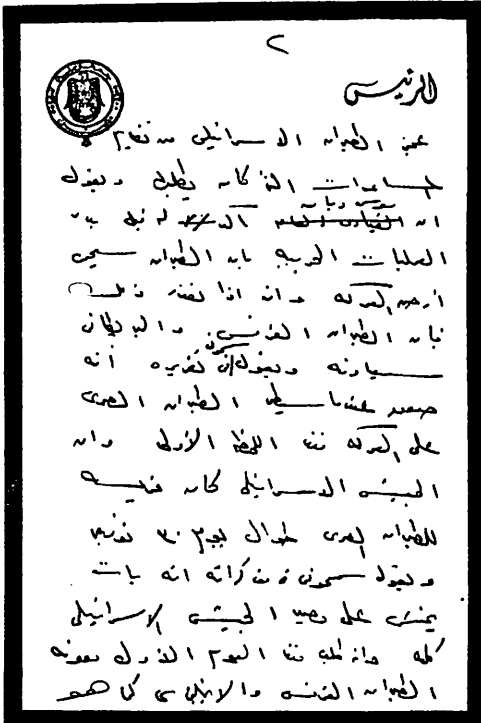 ٢
الرئيس
عجز الطيران الاسرائيلى من تقديم
المساعدات التى كان يطلبها ويقول
ان بن جوريون أكد له قبل بدء
العمليات الحربية بان الطيران سيحمى
أرض المعركة وانه اذا تعذر ذلك
فان الطيران الفرنسى والبريطانى
سيعاونه ويقول فى تقريره أنه
صعق عندما سيطر الطيران المصرى
على المعركة منذ اللحظة الأولى وان
الجيش الاسرائيلى كان فريسة
للطيران المصرى طوال يوم ٣٠ نوفمبر
ويقول سيمون فى مذكراته انه بات
يخشى على مصير الجيش الإسرائيلى
كله وانه طلب منذ اليوم الأول معونة
الطيران الفرنسى والانجليزى كما هو